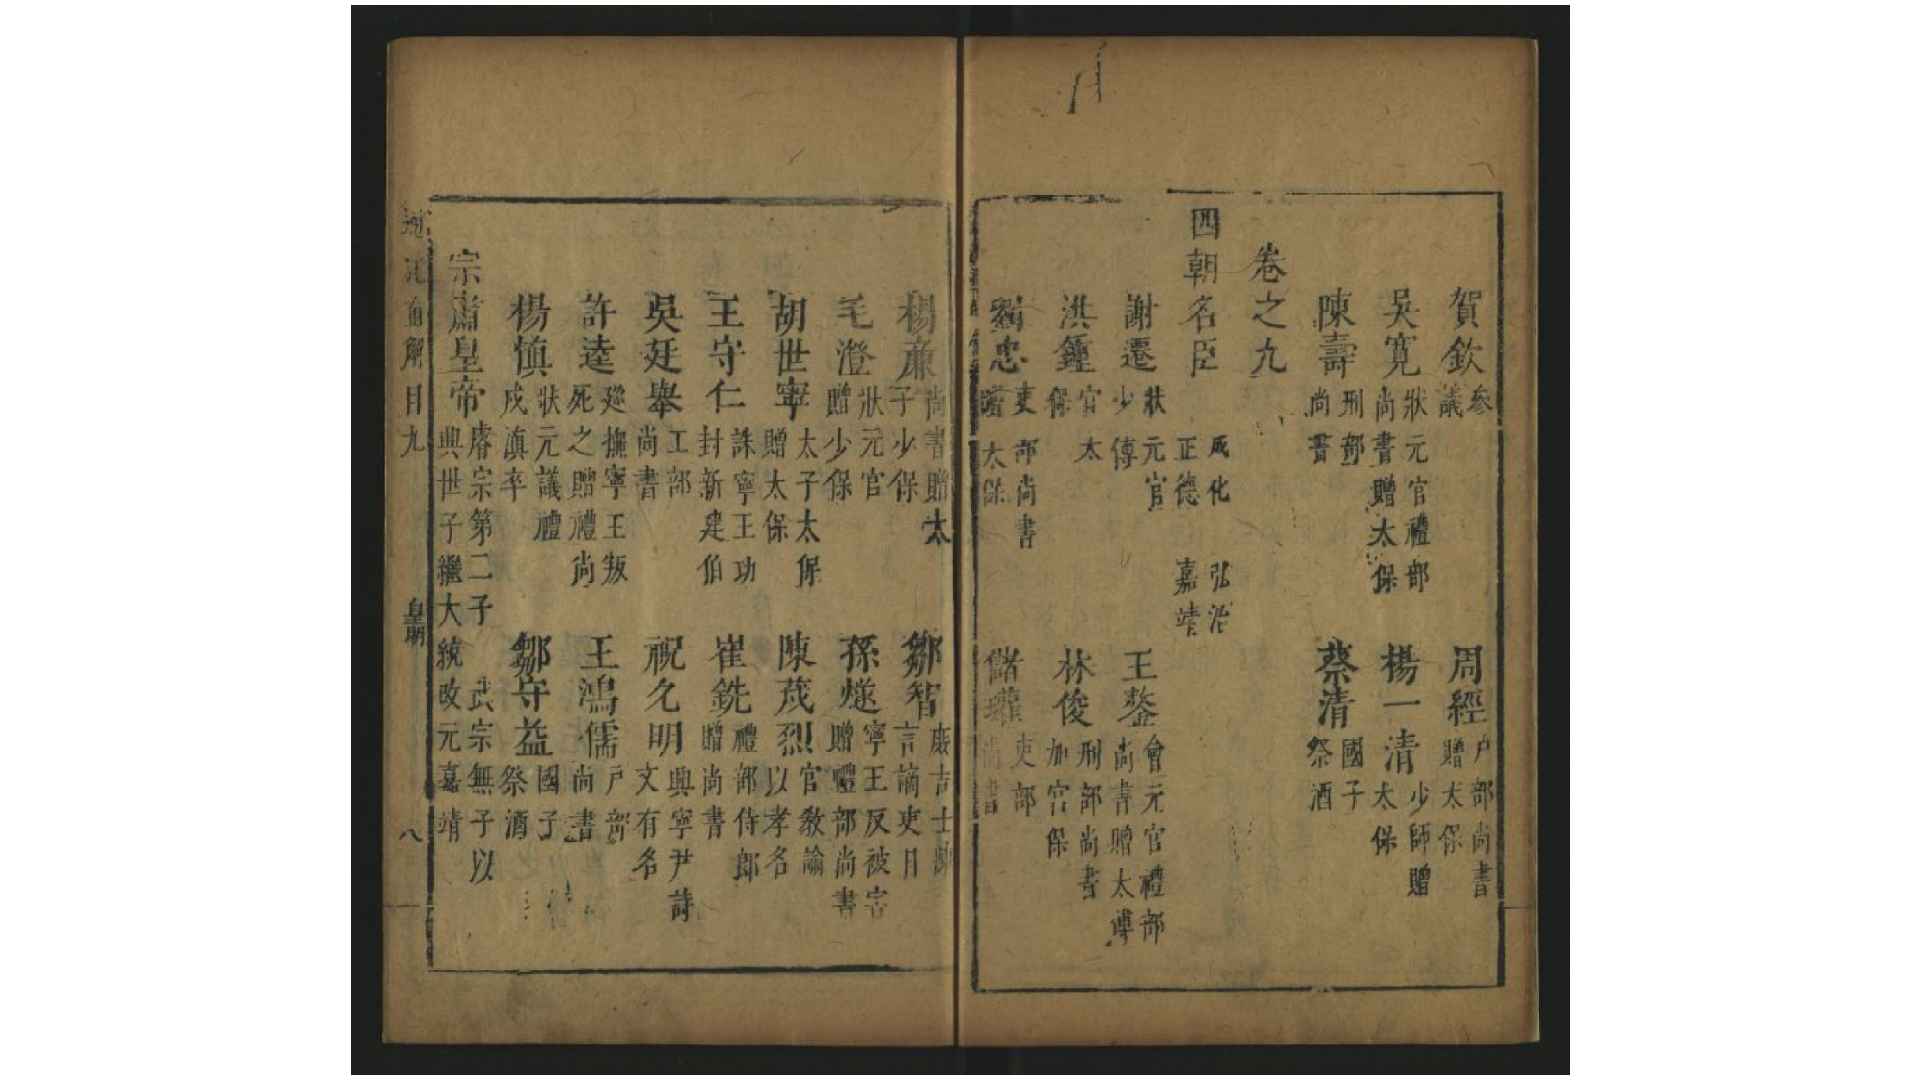 賀欽 參議 周經 戶部尚書贈太保
吳寬 狀元官禮部尚書贈太保 楊一清 少師贈太保
陳壽 刑部尚書 蔡清 國子祭酒
卷之九
四朝名臣 成化 弘治 正德 嘉靖
謝遷 狀元官少傅 王鏊 會元官禮部尚書贈太傅
洪鍾 官太保 林俊 刑部尚書加宮保
劉忠 吏部尚書贈太保 儲瓘 吏部尚書
楊廉 尚書贈太子少保 鄒智 庶吉士 言謫吏目
毛澄 狀元官贈少保 孫燧 寧王反被害贈禮部尚書
胡世寧 太子太保贈太保 陳茂烈 官教諭以孝名
王守仁 誅寧王功封新建伯 崔銑 禮部侍郎贈尚書
吳廷舉 工部尚書 祝允明 興寧尹詩文有名
許逵 死之贈禮尚 撫寧王叛 王鴻儒 戶部尚書
楊慎 狀元議禮戍滇卒 鄒守益 國子祭酒
宗肅皇帝 睿宗第二子 武宗無子以興世子繼大統改元嘉靖
目九 皇明 八